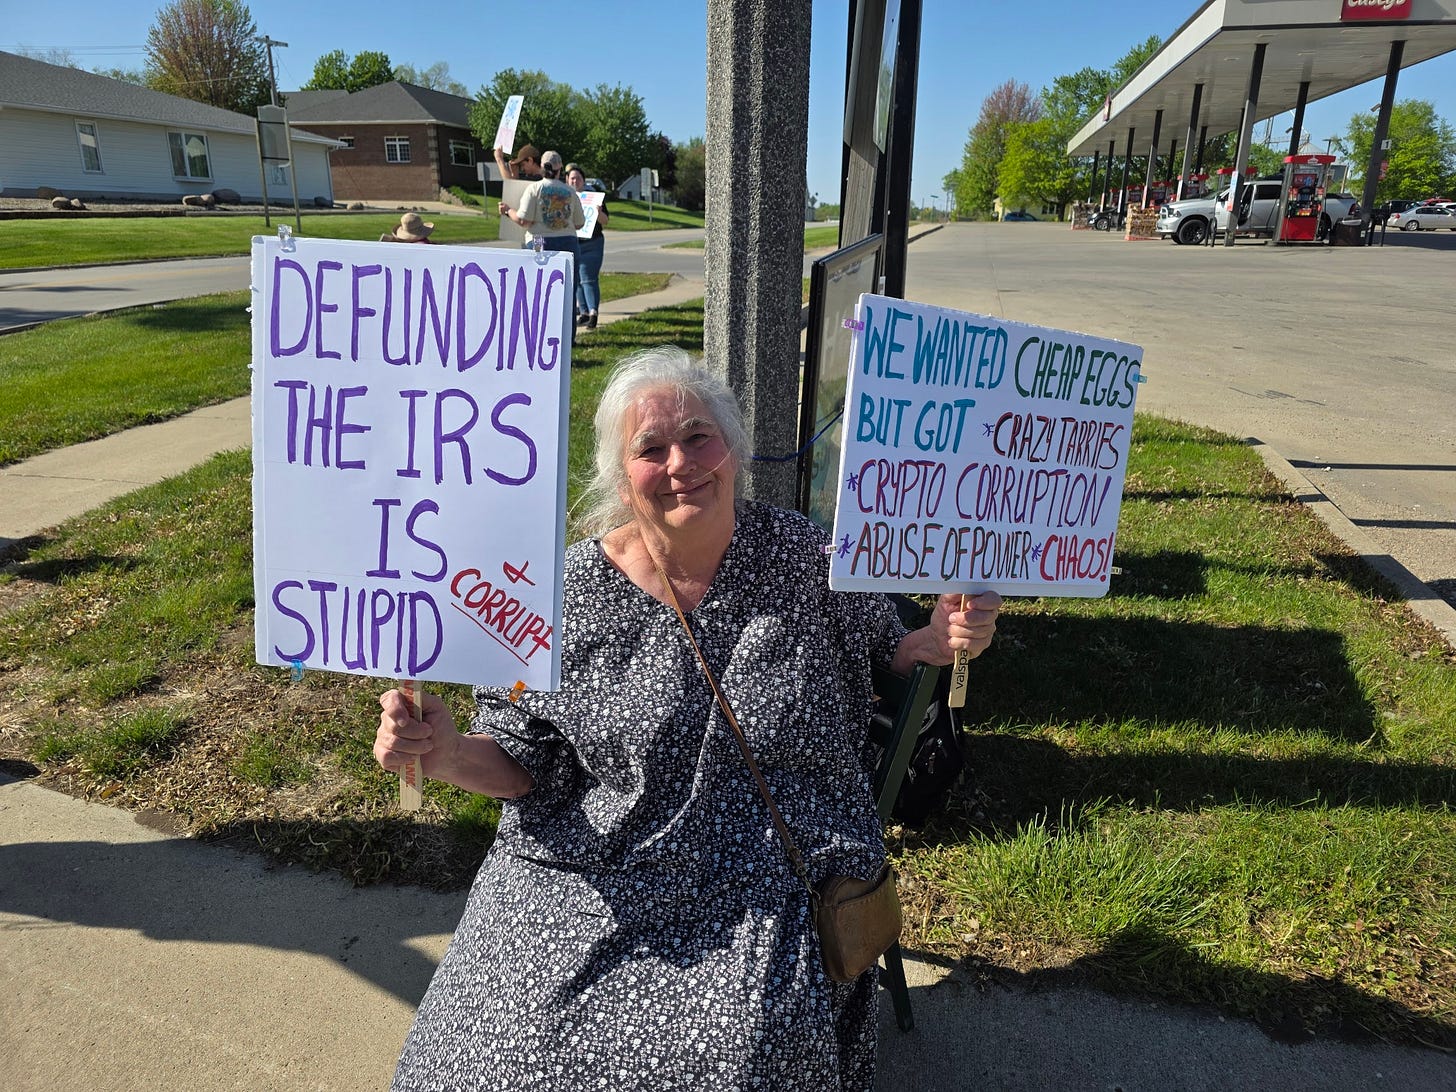 DEFUNDING
THE IRS
IS
STUPID
&
CORRUPT
WE WANTED CHEAP EGGS
BUT GOT *CRAZY TARRIFS
*CRYPTO CORRUPTION!
*ABUSE OF POWER *CHAOS!
valspar
Casey's